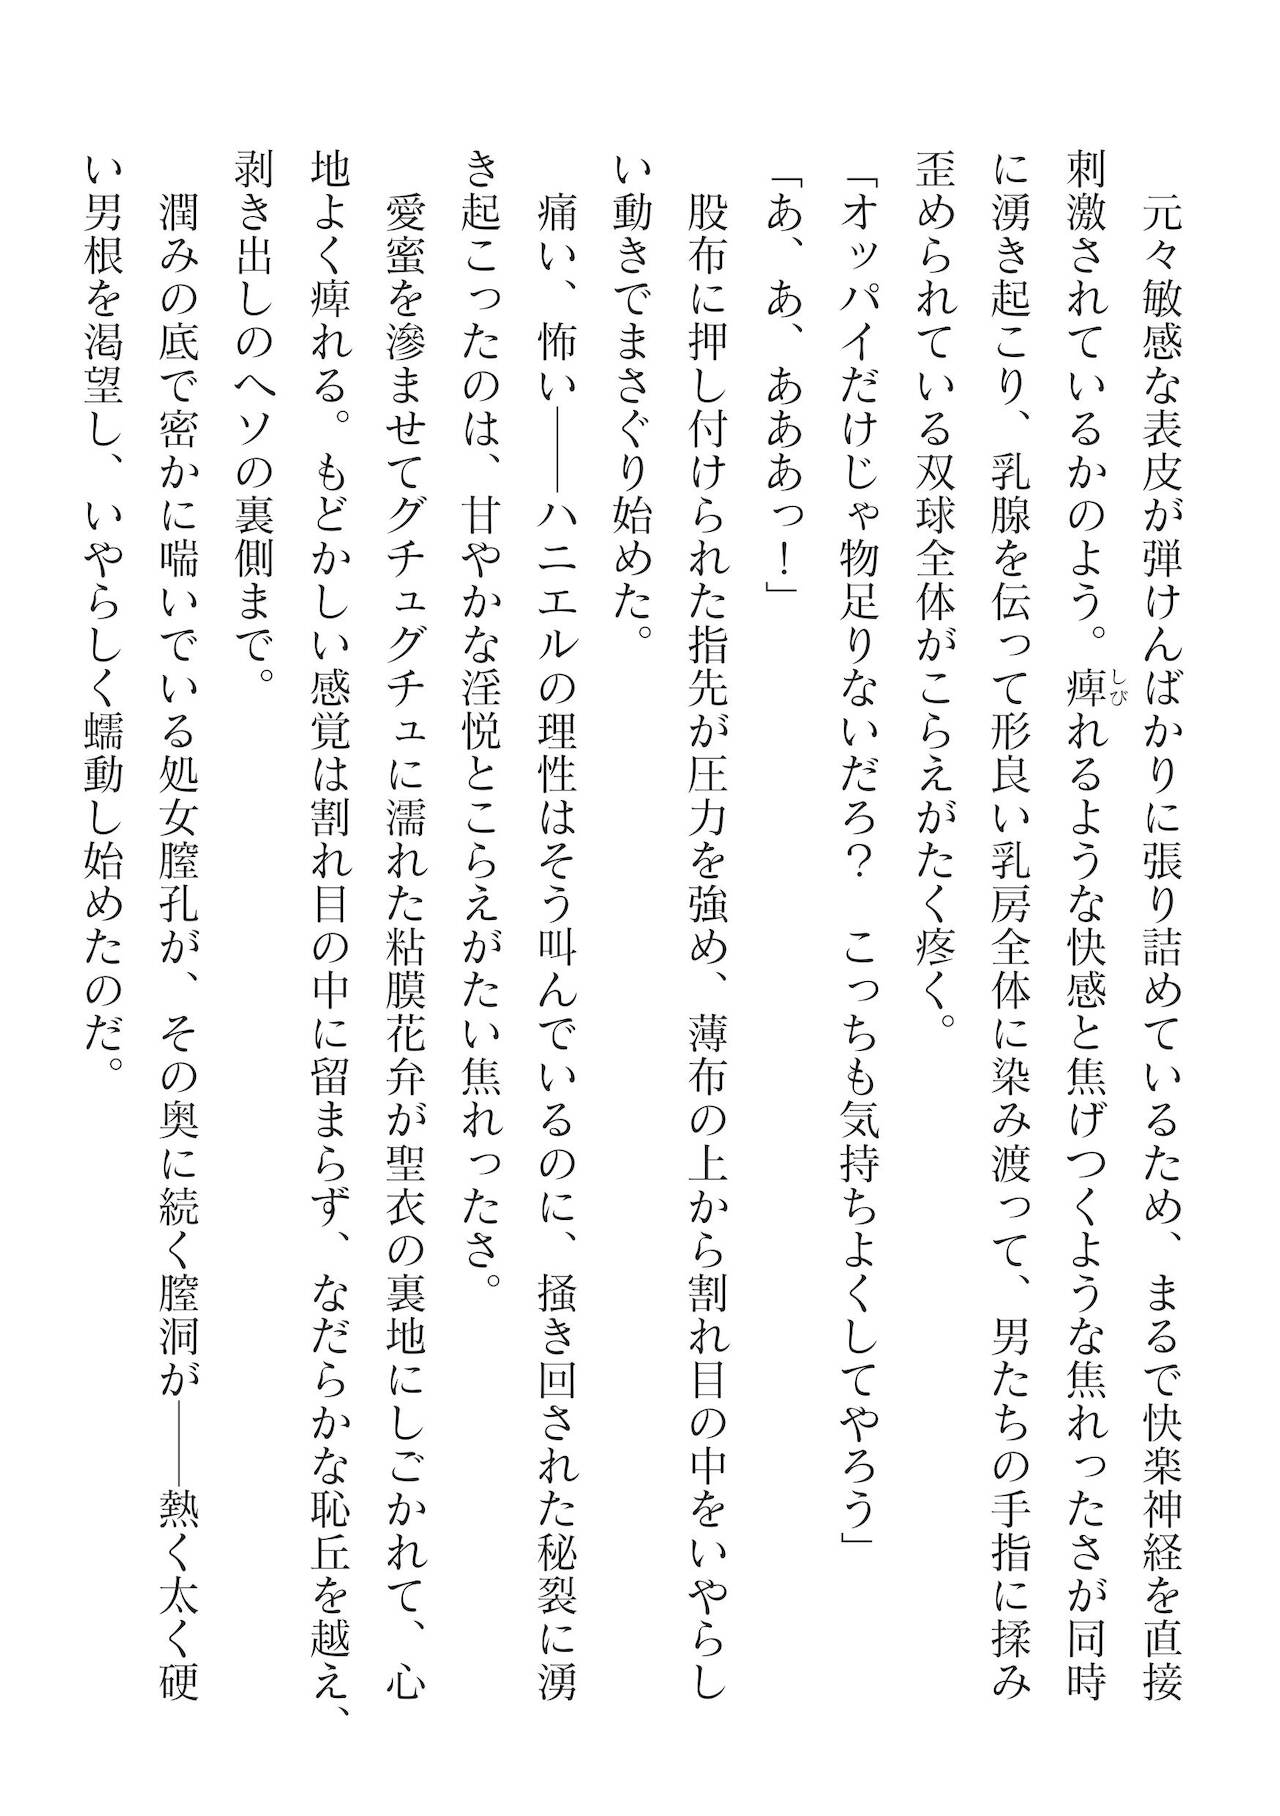 元々敏感な表皮が弾けんばかりに張り詰めているため、まるで快楽神経を直接
刺激されているかのよう。痺れるような快感と焦げつくような焦れったさが同時
しび
に湧き起こり、乳腺を伝って形良い乳房全体に染み渡って、男たちの手指に揉み
歪められている双球全体がこらえがたく疼く。
「オッパイだけじゃ物足りないだろ？　こっちも気持ちよくしてやろう」
「あ、あ、あああっ！」
股布に押し付けられた指先が圧力を強め、薄布の上から割れ目の中をいやらし
い動きでまさぐり始めた。
痛い、怖い――ハニエルの理性はそう叫んでいるのに、掻き回された秘裂に湧
き起こったのは、甘やかな淫悦とこらえがたい焦れったさ。
愛蜜を滲ませてグチュグチュに濡れた粘膜花弁が聖衣の裏地にしごかれて、心
地よく痺れる。もどかしい感覚は割れ目の中に留まらず、なだらかな恥丘を越え、
剥き出しのヘソの裏側まで。
潤みの底で密かに喘いでいる処女膣孔が、その奥に続く膣洞が――熱く太く硬
い男根を渇望し、いやらしく蠕動し始めたのだ。